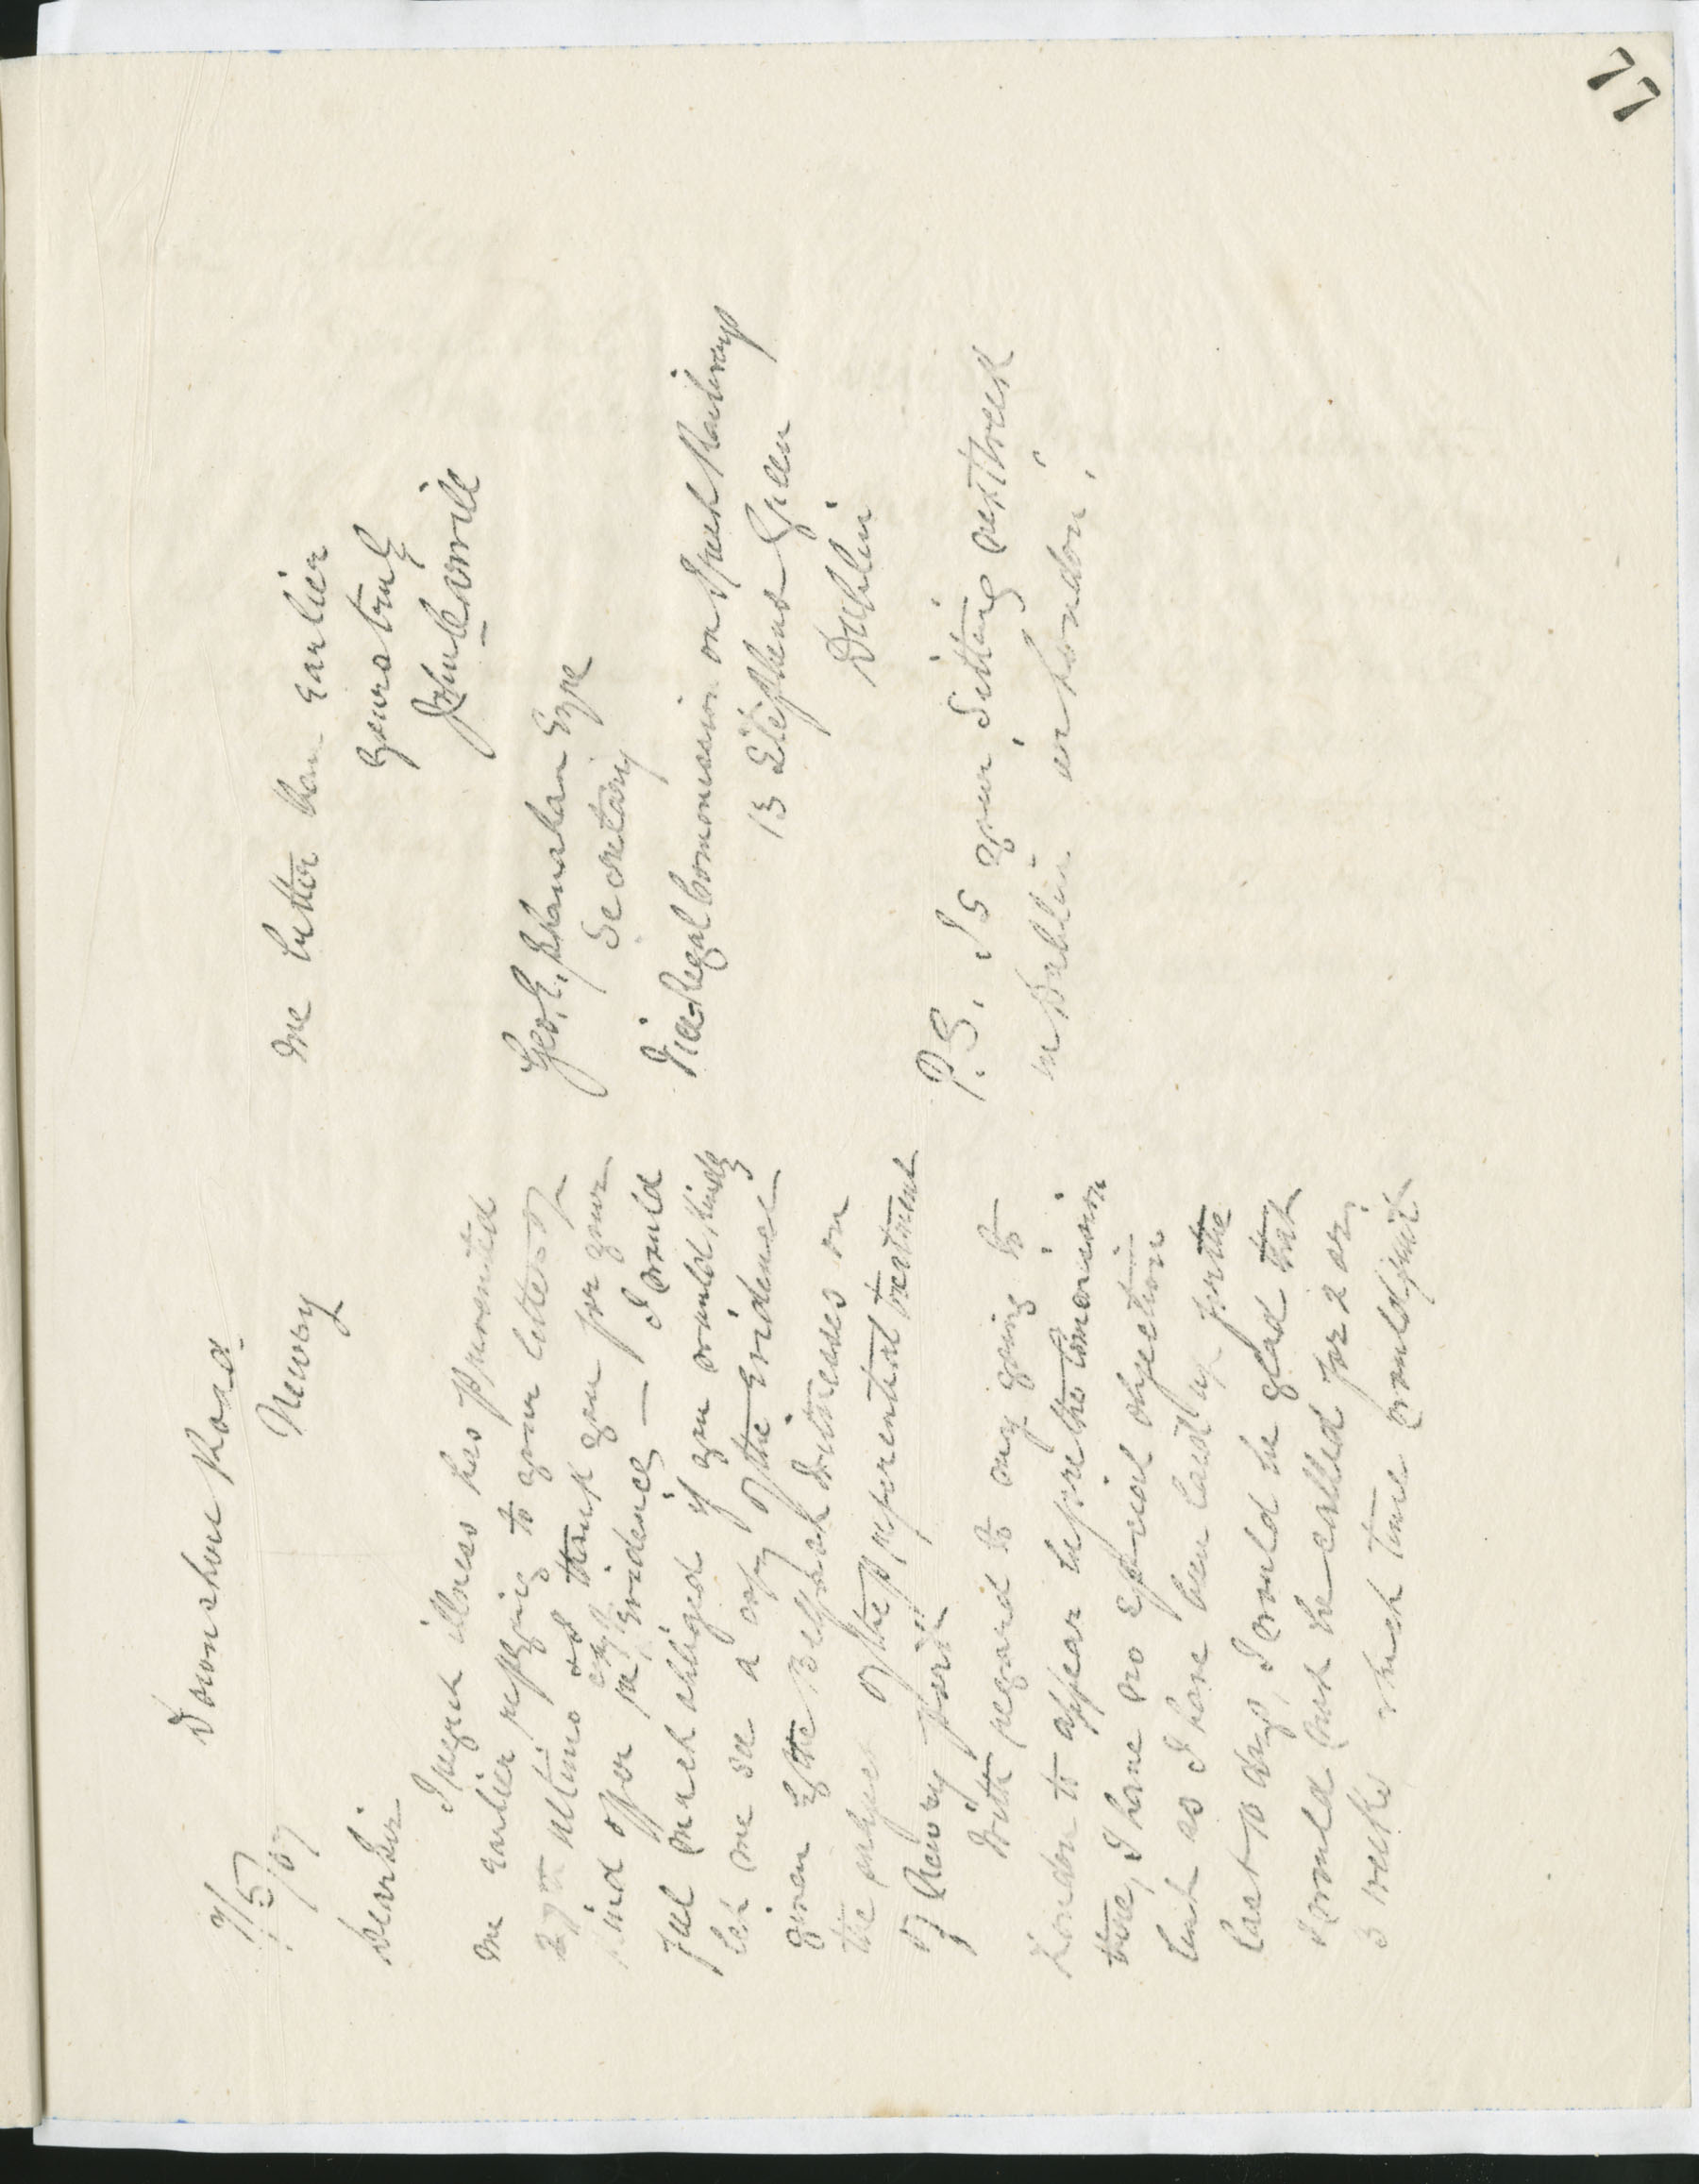 77
Downshire Road
Newry
7/5/07
Dear Sir
I regret illness has prevented
me earlier replying to your letter of
27th ultimo and thank you for your
kind offer re evidence — I would
feel much obliged if you would kindly
let me see a copy of the Evidence
given by the Belfast Witnesses on
the subject of the preferential treatment
of Newry port.
With regard to my going to
London to appear before the Commission
there, I have no Especial objection
but as I have been laid up for the
last 10 days, I would be glad that
I would not be called for 2 or
3 weeks which time would suit
me better than earlier
yours truly
John
Geo. E. Shanahan Esqre
Secretary
Vice-Regal Commission on Irish Railways
13 Stephens Green
Dublin
P.S. Is your sitting next week
in Dublin or London.